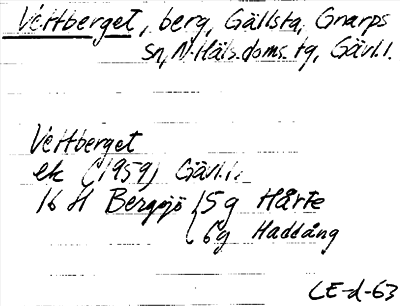 Vettberget, berg, Gällsta, Gnarps
sn, N. Häls. doms. tg, Gävl. l.
Vettberget
ek (1959) Gävl. l.
16 H Bergsjö { 5g Hårte
6g Haddäng
CE-d-63